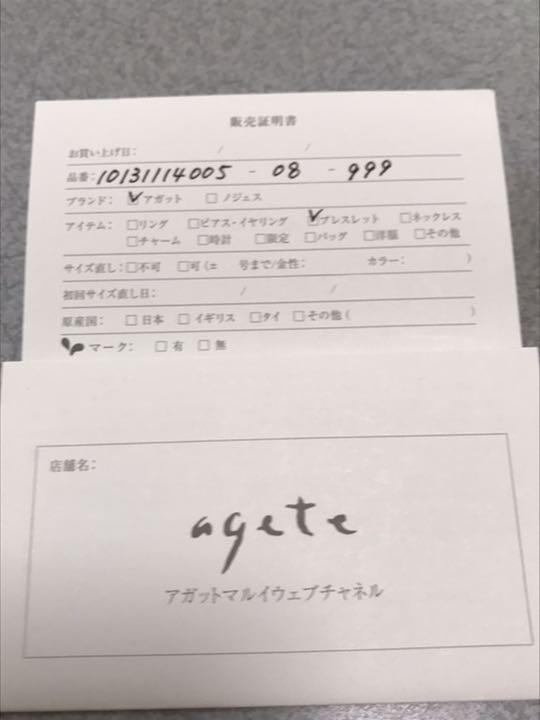 販売証明書
お買い上げ日: / /
品番: 10131114005 - 08 - 999
ブランド: ☑アガット □ノジェス
アイテム: □リング □ピアス・イヤリング ☑ブレスレット □ネックレス
□チャーム □時計 □限定 □バッグ □洋服 □その他
サイズ直し: □不可 □可 (± 号まで/金性: カラー: )
初回サイズ直し日: / /
原産国: □日本 □イギリス □タイ □その他 ( )
マーク: □有 □無
店舗名:
agete
アガットマルイウェブチャネル